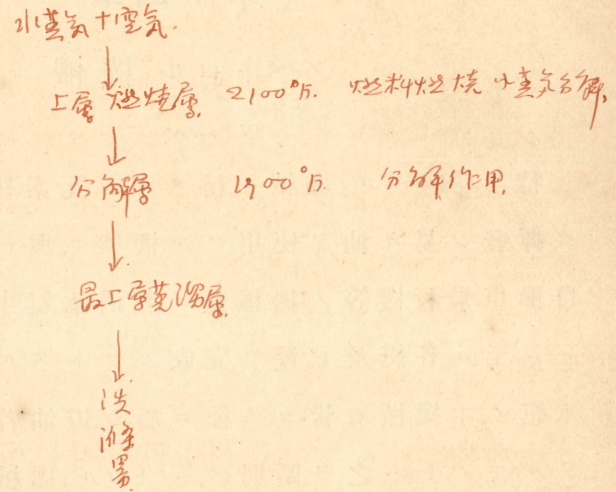 水蒸気+空気
上層 燃焼層 2100°F. 燃料燃焼 水蒸気分解
分解層 1900°F. 分解作用
最上層蒸溜層
洗滌器